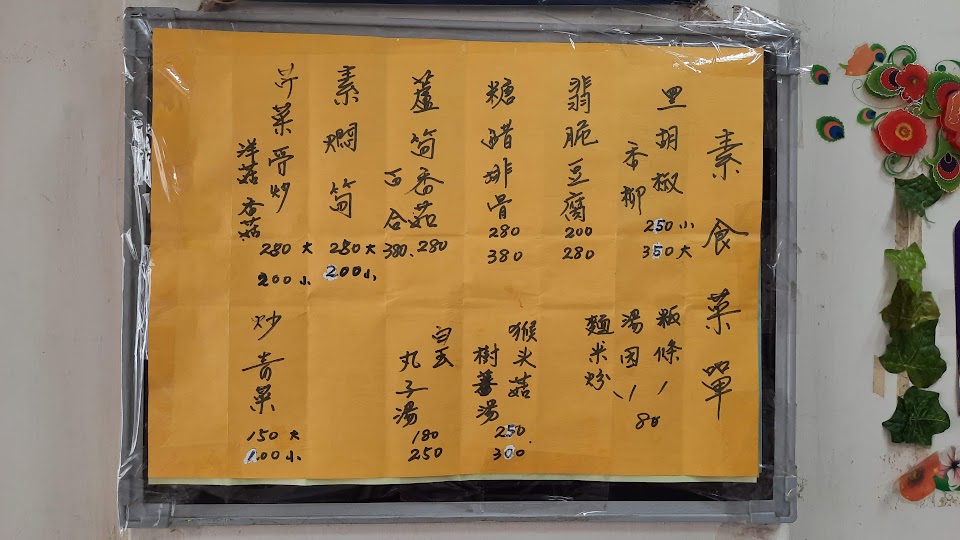 素食菜單
黑胡椒
杏柳
250小
350大
翡脆豆腐
200
280
糖醋排骨
280
380
蘆筍香菇
百合
280
380
素燜筍
280大
200小
芥菜骨炒
洋菇香菇
280大
200小
粄條
湯囝
麵米粉
80
猴头菇
樹蕃湯
250
300
白玉
丸子湯
180
250
炒青菜
150大
100小